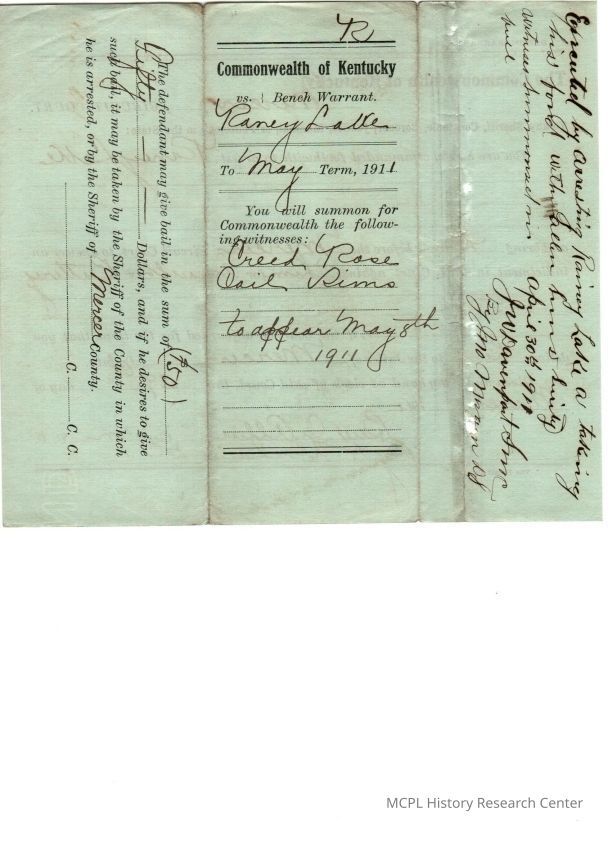 The defendant may give bail in the sum of ($50)
Fifty Dollars, and if he desires to give
such bail, it may be taken by the Sheriff of the County in which
he is arrested, or by the Sheriff of Mercer County.
C. C. C.
R
Commonwealth of Kentucky
vs. } Bench Warrant.
Raney Lake
To May Term, 1911
You will summon for
Commonwealth the follow-
ing witnesses:
Creed Rose
Cail Sims
to appear May 8th
1911
Executed by arresting Rainey Lake & taking
his bond with Allen Sims surity
witness summonsed in
full April 30th 1911
J W Davenport Smc
By Jno DS
MCPL History Research Center